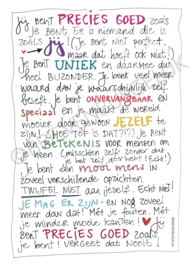 jij bent PRECIES GOED zoals
je bent. Er is niemand die is
zoals jij! (Je bent niet perfect,
maar dat hoeft ook niet!)
Je bent UNIEK en daarmee dus
heel BIJZONDER. Je bent veel meer
waard dan je waarschijnlijk zelf
beseft. Je bent ONVERVANGBAAR en
speciaal en je maakt de wereld
mooier door gewoon JEZELF te
zijn! (Hoe tof is dat?!?) Je bent
van BETEKENIS voor mensen om
je heen (misschien zelfs zonder dat
je het zelf door hebt! Echt!)
Je bent een mooi mens in
zoveel verschillende opzichten.
TWIJFEL NIET aan jezelf. Echt niet!
JE MAG ER ZIJN - en nog zoveel
meer dan dat! Mét je fouten. Mét
je minder mooie kanten! Jij
bent PRECIES GOED zoals
je bent! Vergeet dat nooit.